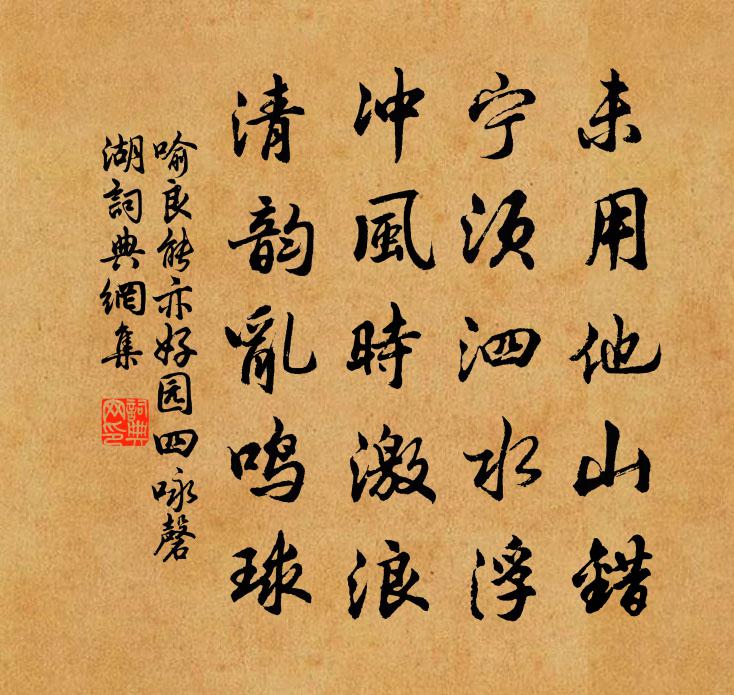 未用他山錯
宁须泗水浮
冲風時激浪
清韵亂鸣球
喻良能亦好园四咏磬
湖詞典網集
詞典网印